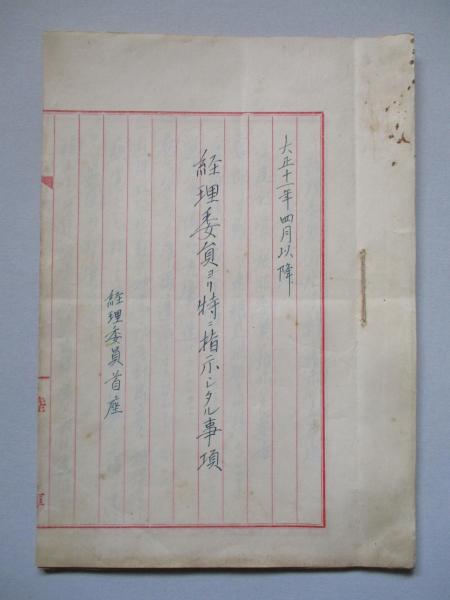 大正十一年四月以降
経理委員ヨリ特ニ指示シタル事項
経理委員首座
陸
軍